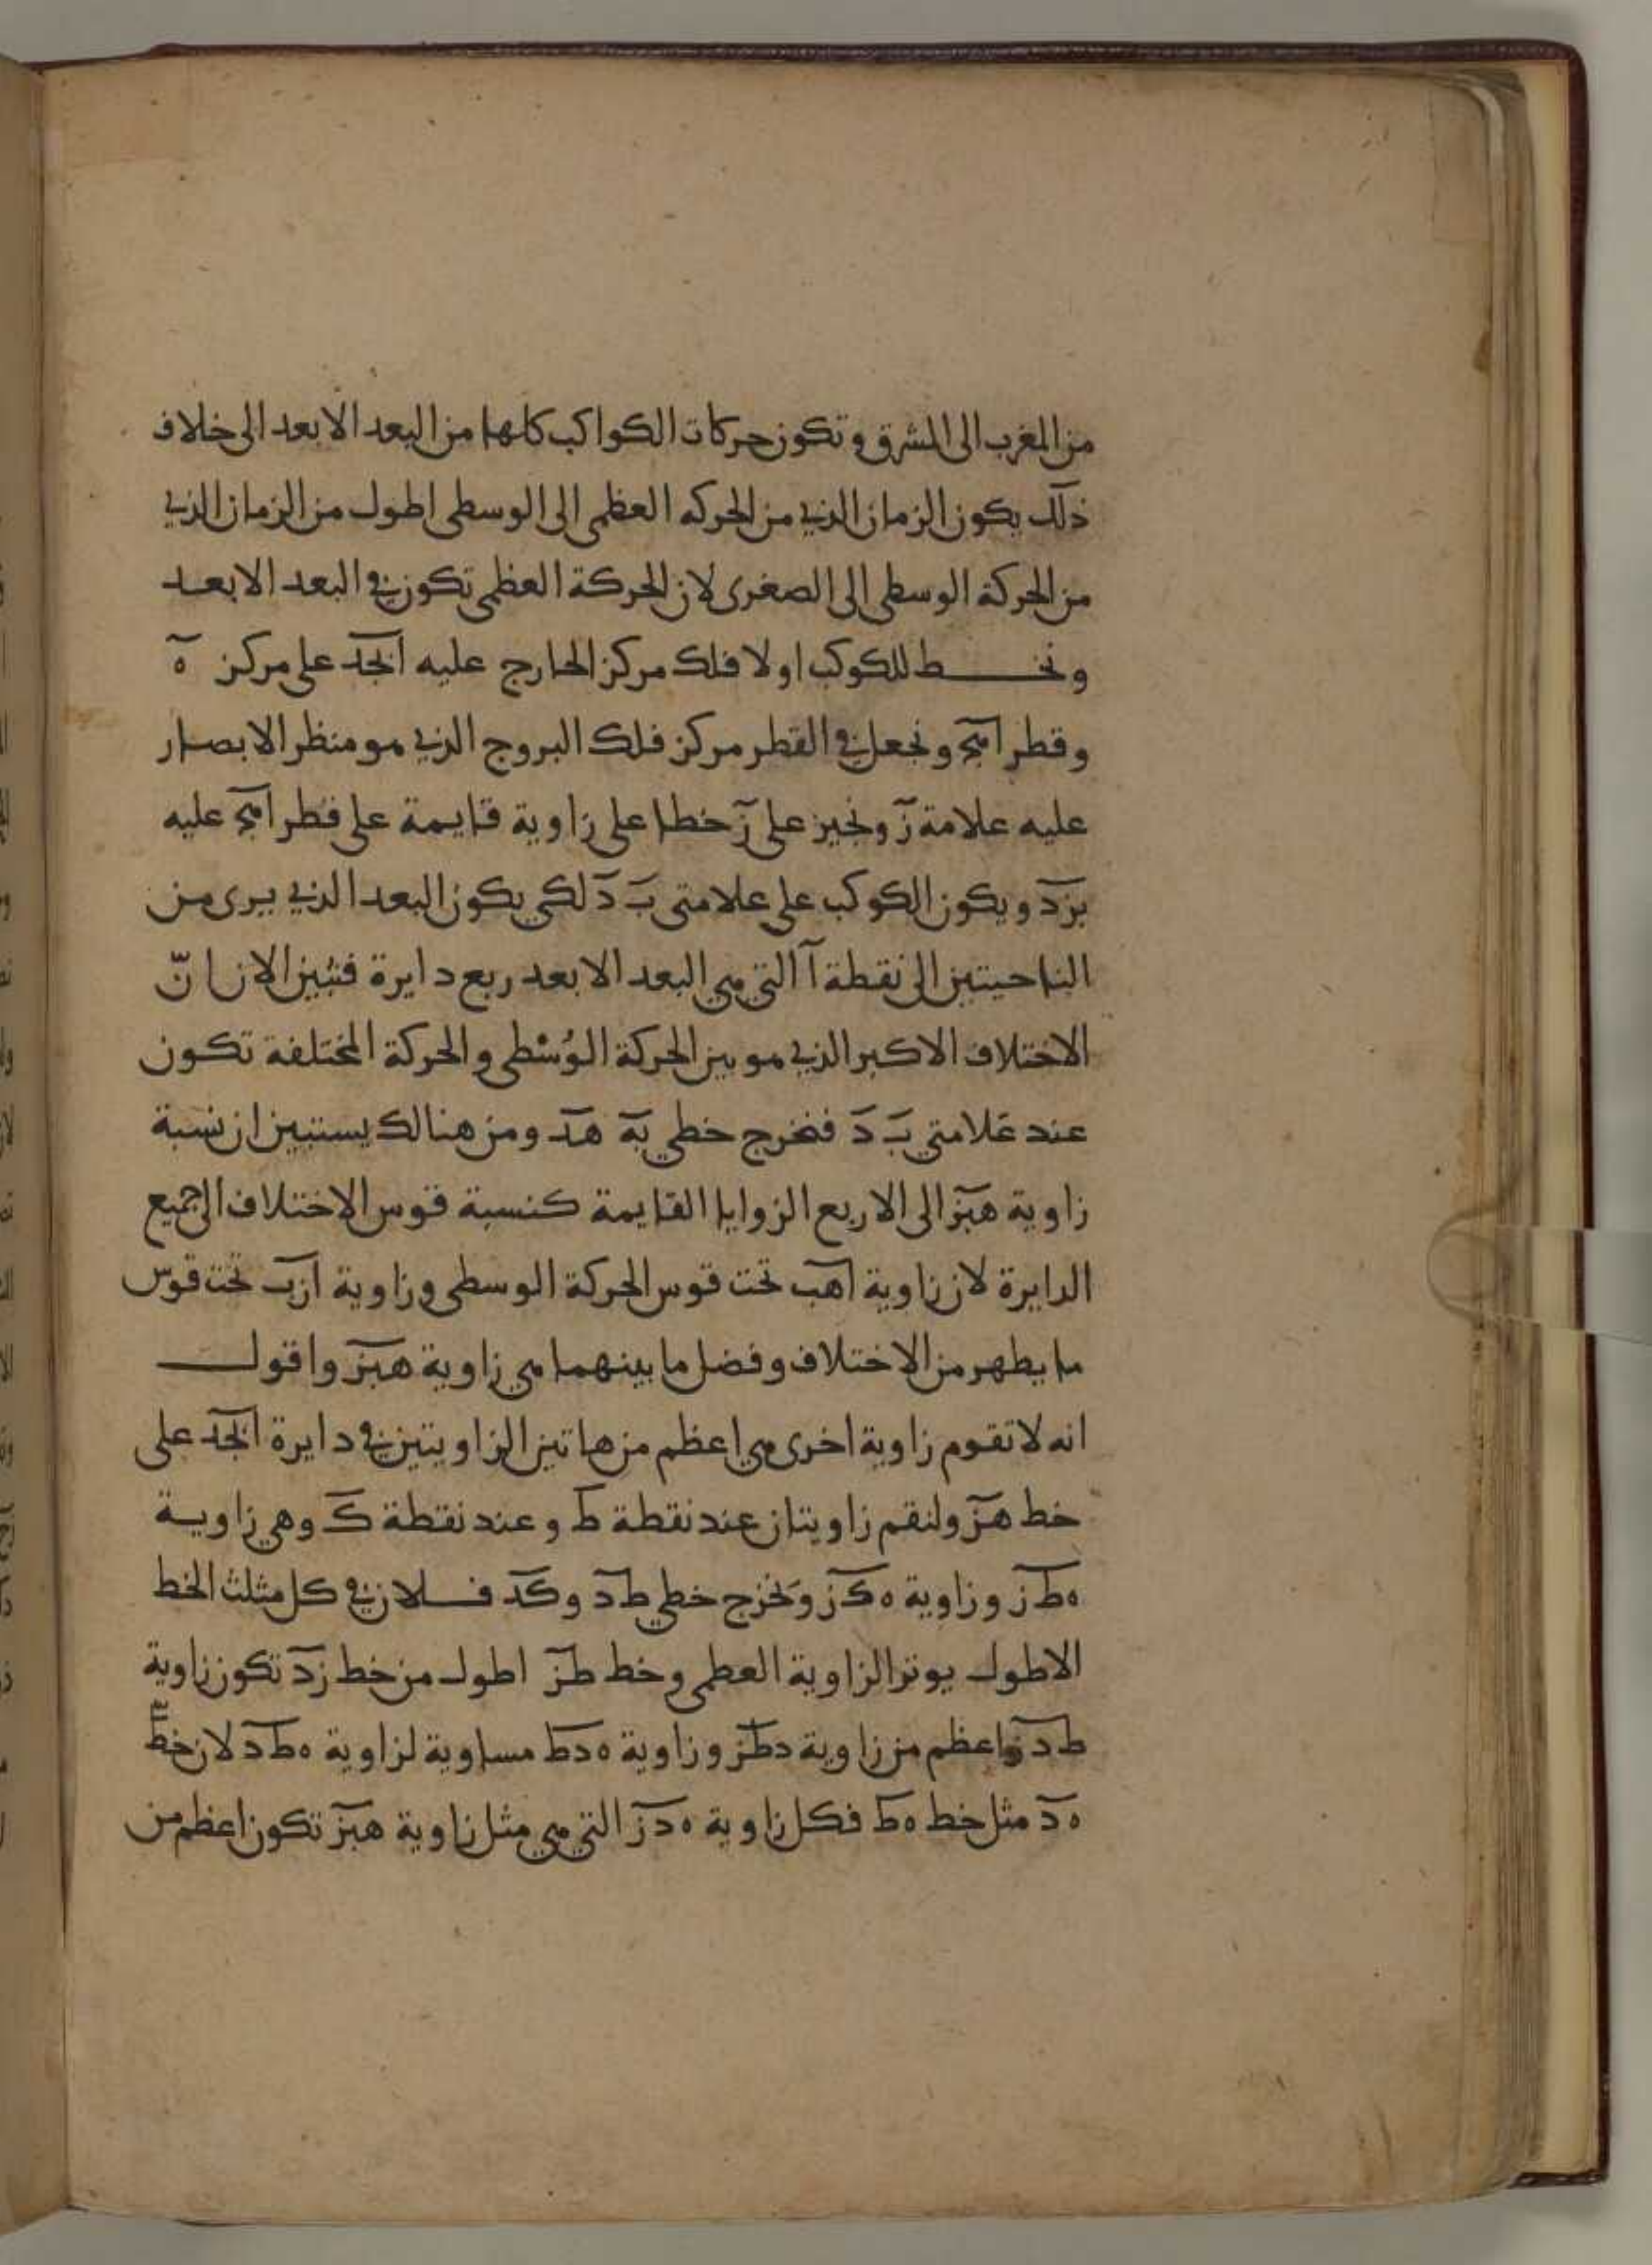 من المغرب الى المشرق وتكون حركات الكواكب كلها من البعد الابعد الى خلاف
ذلك يكون الزمان الذي من الحركه العظمى الى الوسطى اطول من الزمان الذي
من الحركة الوسطى الى الصغرى لان الحركة العظمى تكون في البعد الابعد
ونخط للكوكب اولا فلك مركز الخارج عليه ابجد على مركز ه
وقطر اهج ونجعل في القطر مركز فلك البروج الذي هو منظر الابصار
عليه علامة ز ونجيز على ز خطا على زاوية قايمة على قطر اهج عليه
بزد ويكون الكوكب على علامتى ب د لكي يكون البعد الذي يرى من
الناحيتين الى نقطة آ التي هي البعد الابعد ربع دايرة فتبين الان انّ
الاختلاف الاكبر الذي هو بين الحركة الوُسْطى والحركة المختلفة تكون
عند علامتي ب د فنخرج خطي به هد ومن هنالك يستبين ان نسبة
زاوية هبز الى الاربع الزوايا القايمة كنسبة قوس الاختلاف الى جميع
الدايرة لان زاوية اهب تحت قوس الحركة الوسطى وزاوية ازب تحت قوس
ما يظهر من الاختلاف وفضل ما بينهما هي زاوية هبز واقول
انه لا تقوم زاوية اخرى هي اعظم من هاتين الزاويتين في دايرة ابجد على
خط هز ولنقم زاويتان عند نقطة ط وعند نقطة ك وهي زاوية
هطز وزاوية هكز ونخرج خطي طد وكد فلان في كل مثلث الخط
الاطول يوتر الزاوية العظمى وخط طز اطول من خط زد تكون زاوية
طدز اعظم من زاوية دطز وزاوية هدط مساوية لزاوية هطد لان خط
هد مثل خط هط فكل زاوية هدز التي هي مثل زاوية هبز تكون اعظم من